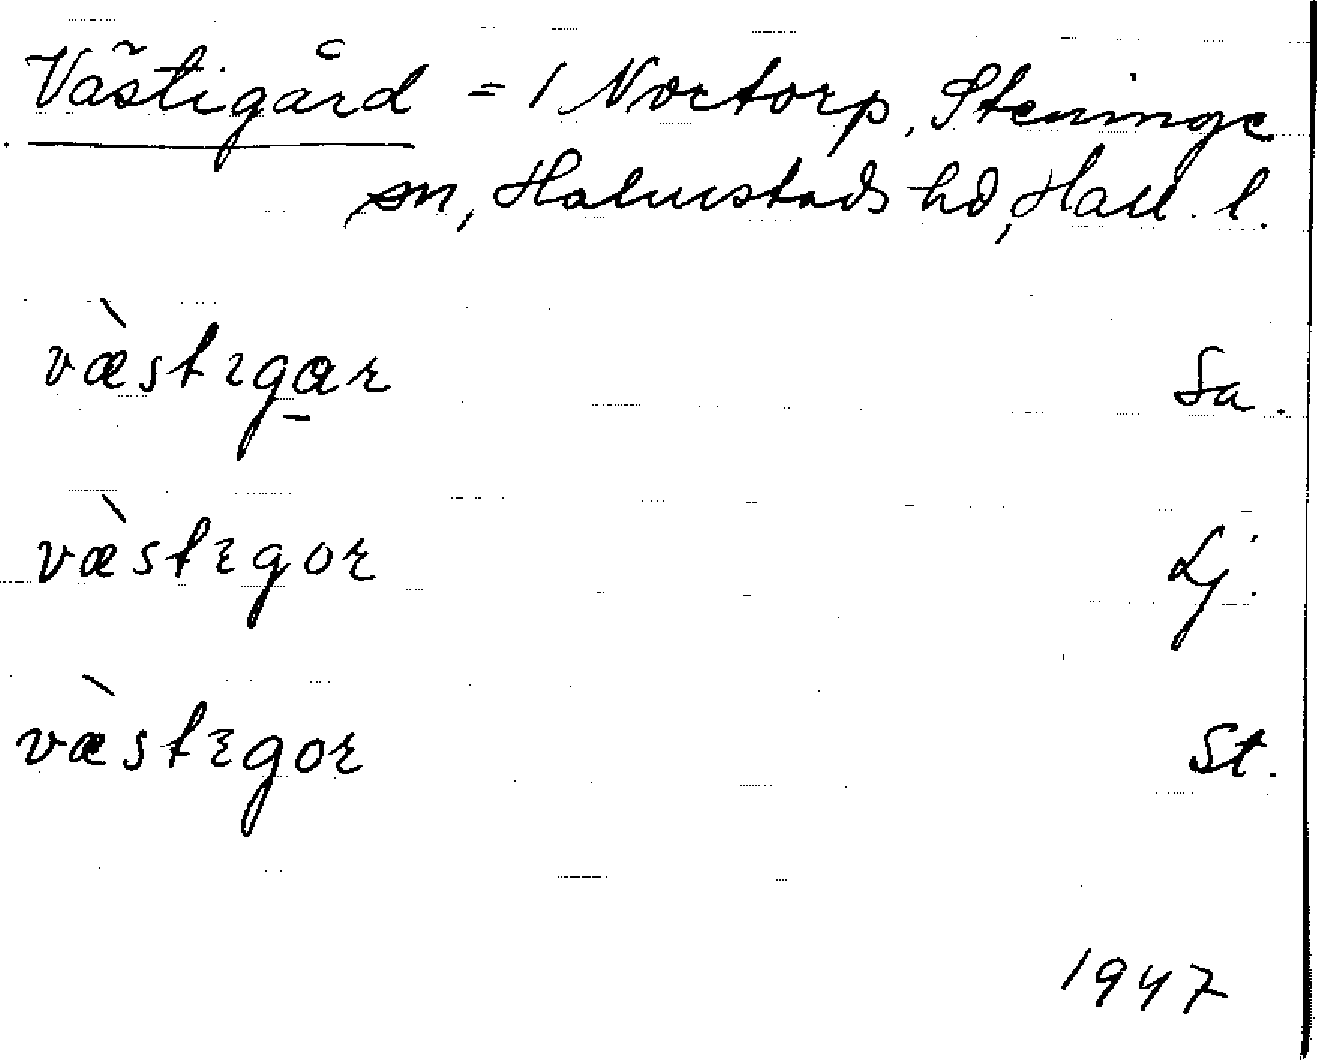 Västigård = 1 Nortorp, Steninge
sn, Halmstads hd, Hall. l.
væ̀stıgar Sa.
væ̀stıgor Lj.
væ̀stıgor St.
1947